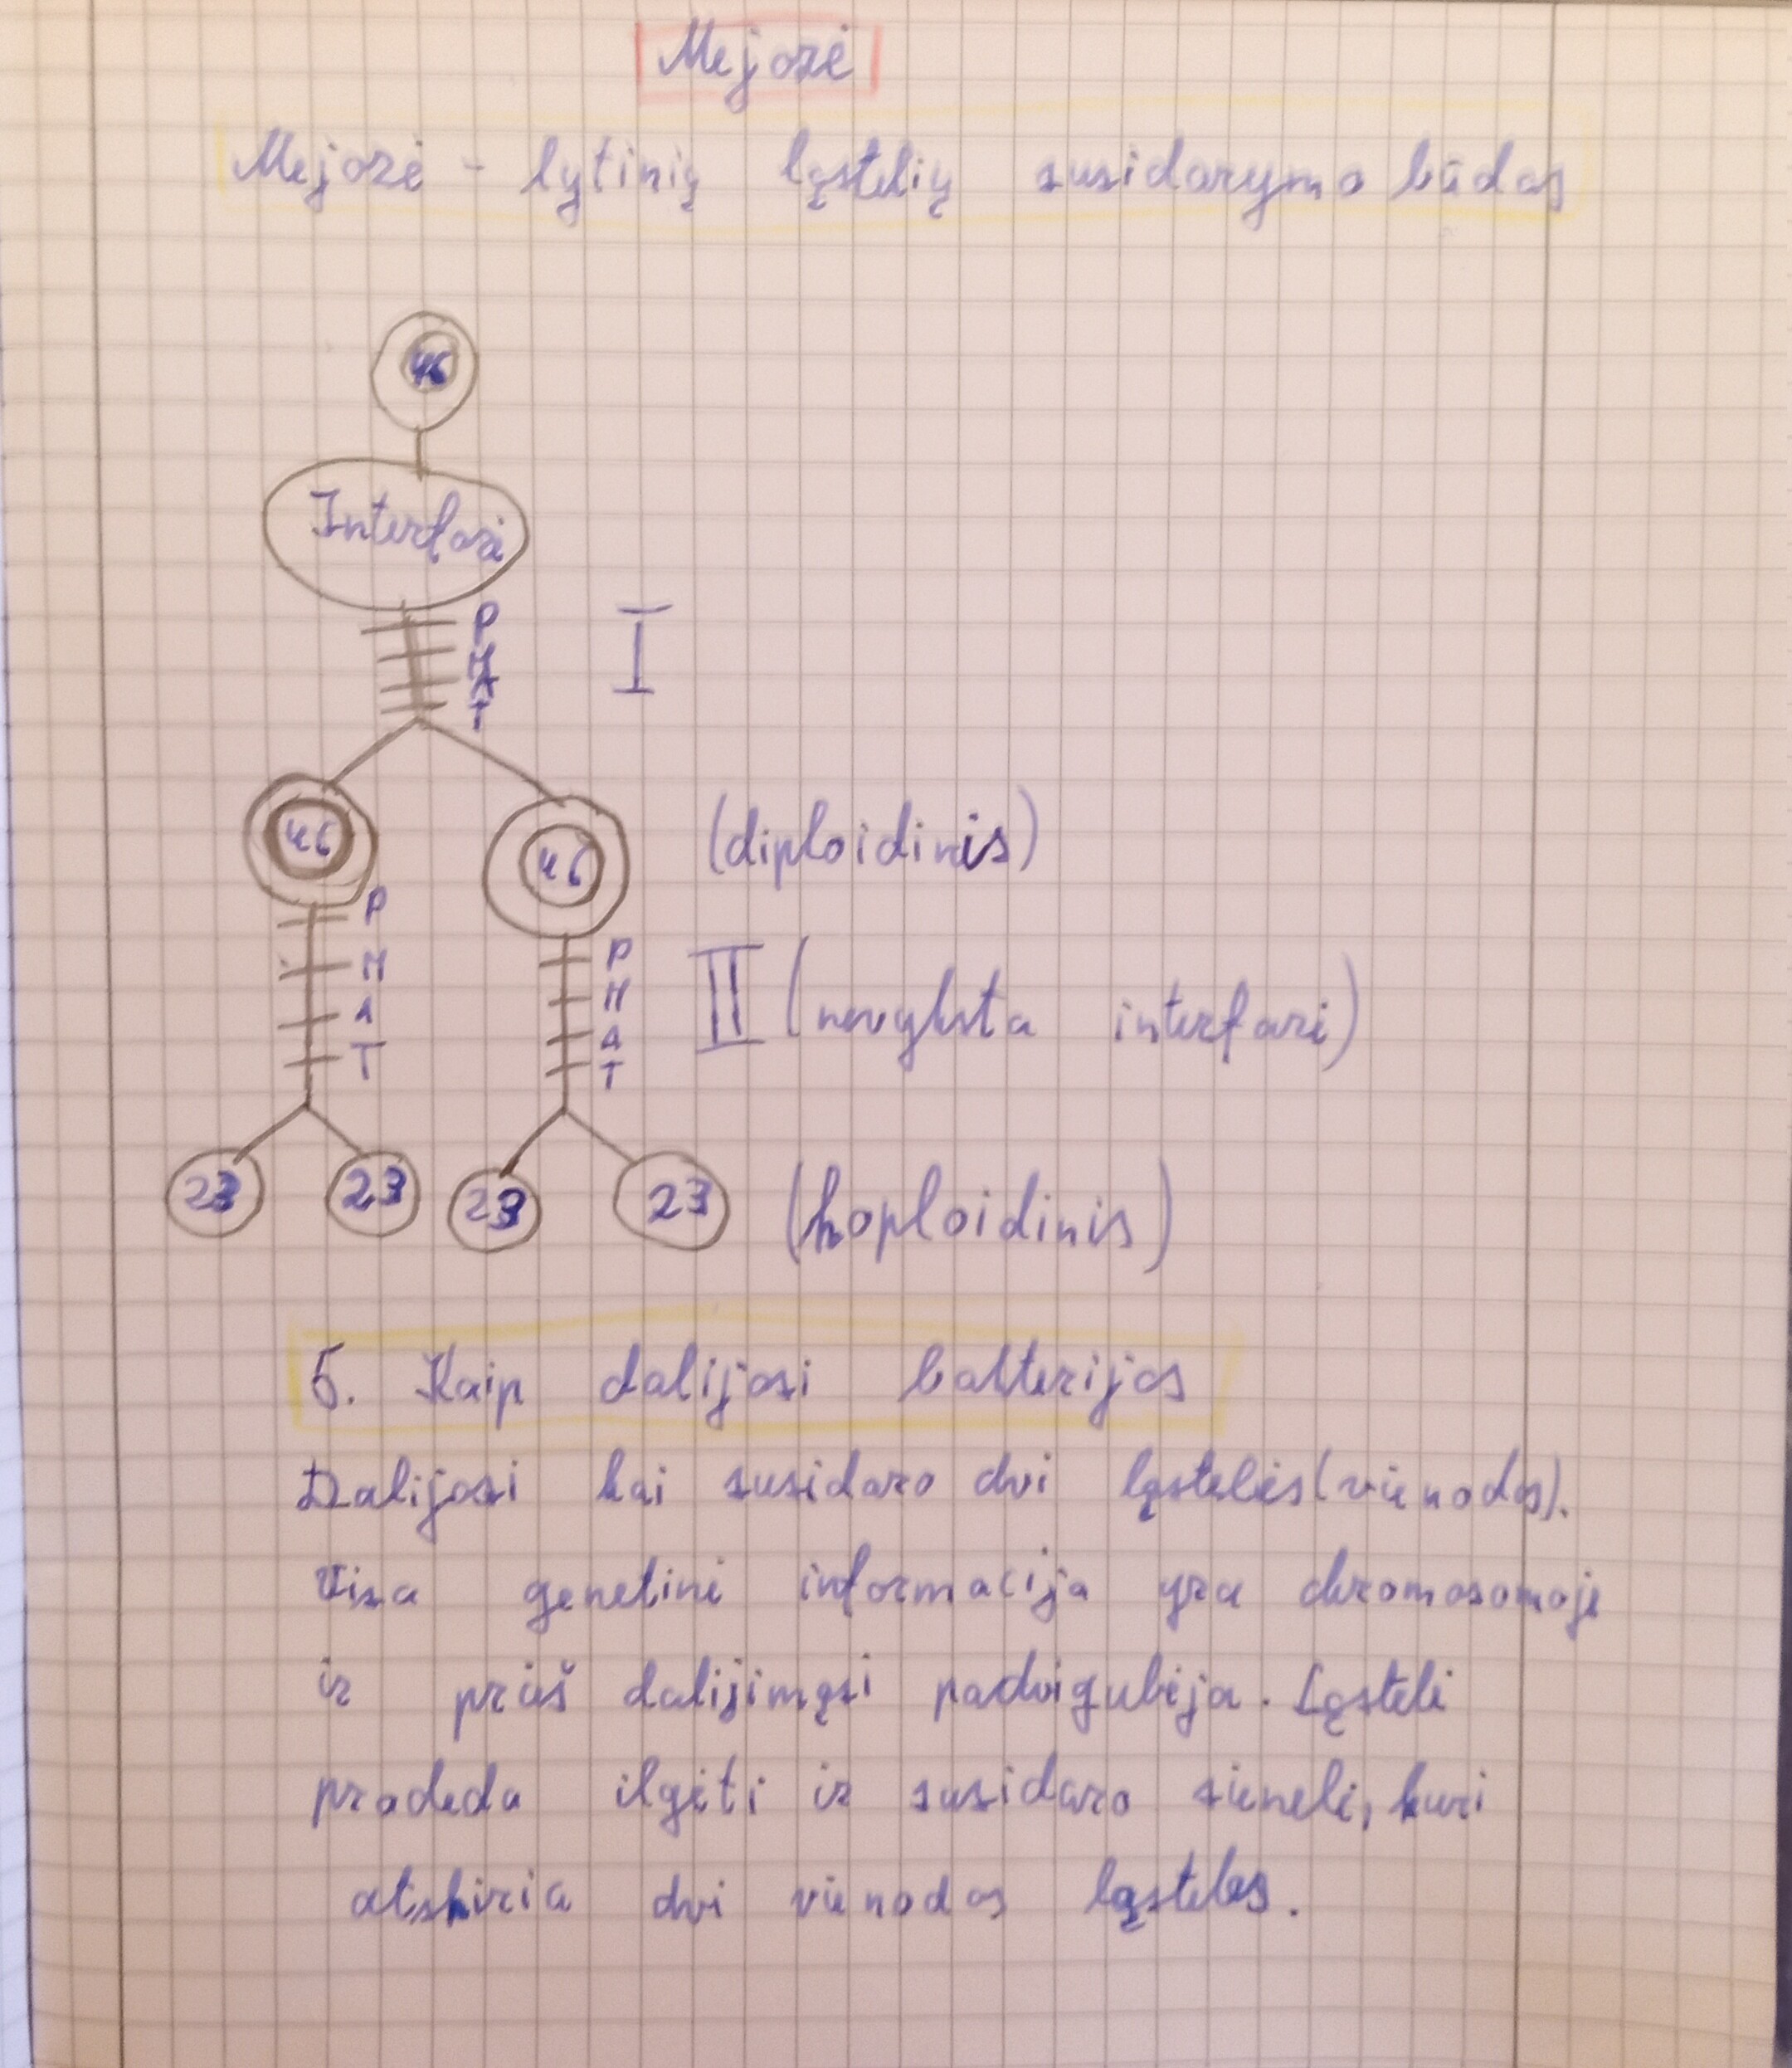 Mejozė
Mejozė - lytinių ląstelių susidarymo būdas
46
Interfazė
P
M
A
T
I
46
46
(diploidinis)
P
M
A
T
P
M
A
T
II (nevyksta interfazė)
23
23
23
23
(haploidinis)
5. Kaip dalijasi bakterijos
Dalijasi kai susidaro dvi ląstelės (vienodos).
Visa genetinė informacija yra chromosomoje
ir prieš dalijimąsi padvigubėja. Ląstelė
pradeda ilgėti ir susidaro sienelė, kuri
atskiria dvi vienodas ląsteles.